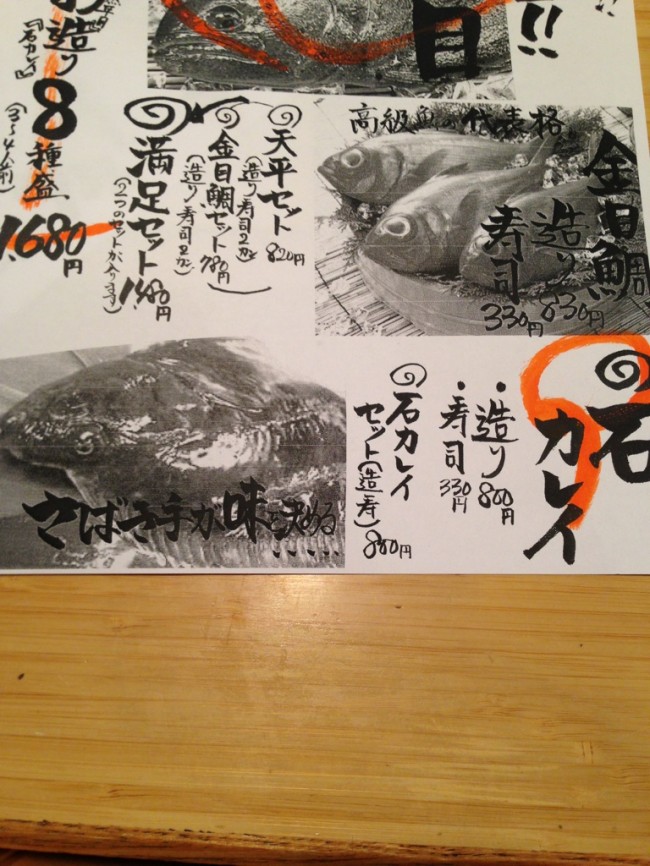 目
!!
お造り
『石カレイ』
8種盛
(3〜4人前)
1.680円
高級魚の代表格
金目鯛
造り 830円
寿司 330円
天平セット
(造り寿司2カン) 820円
金目鯛セット
(造り寿司2カン) 780円
満足セット
(2つのセットが入ります) 1,480円
石カレイ
・造り 800円
・寿司 330円
石カレイ
セット(造寿)
さばき手が味を決める.....